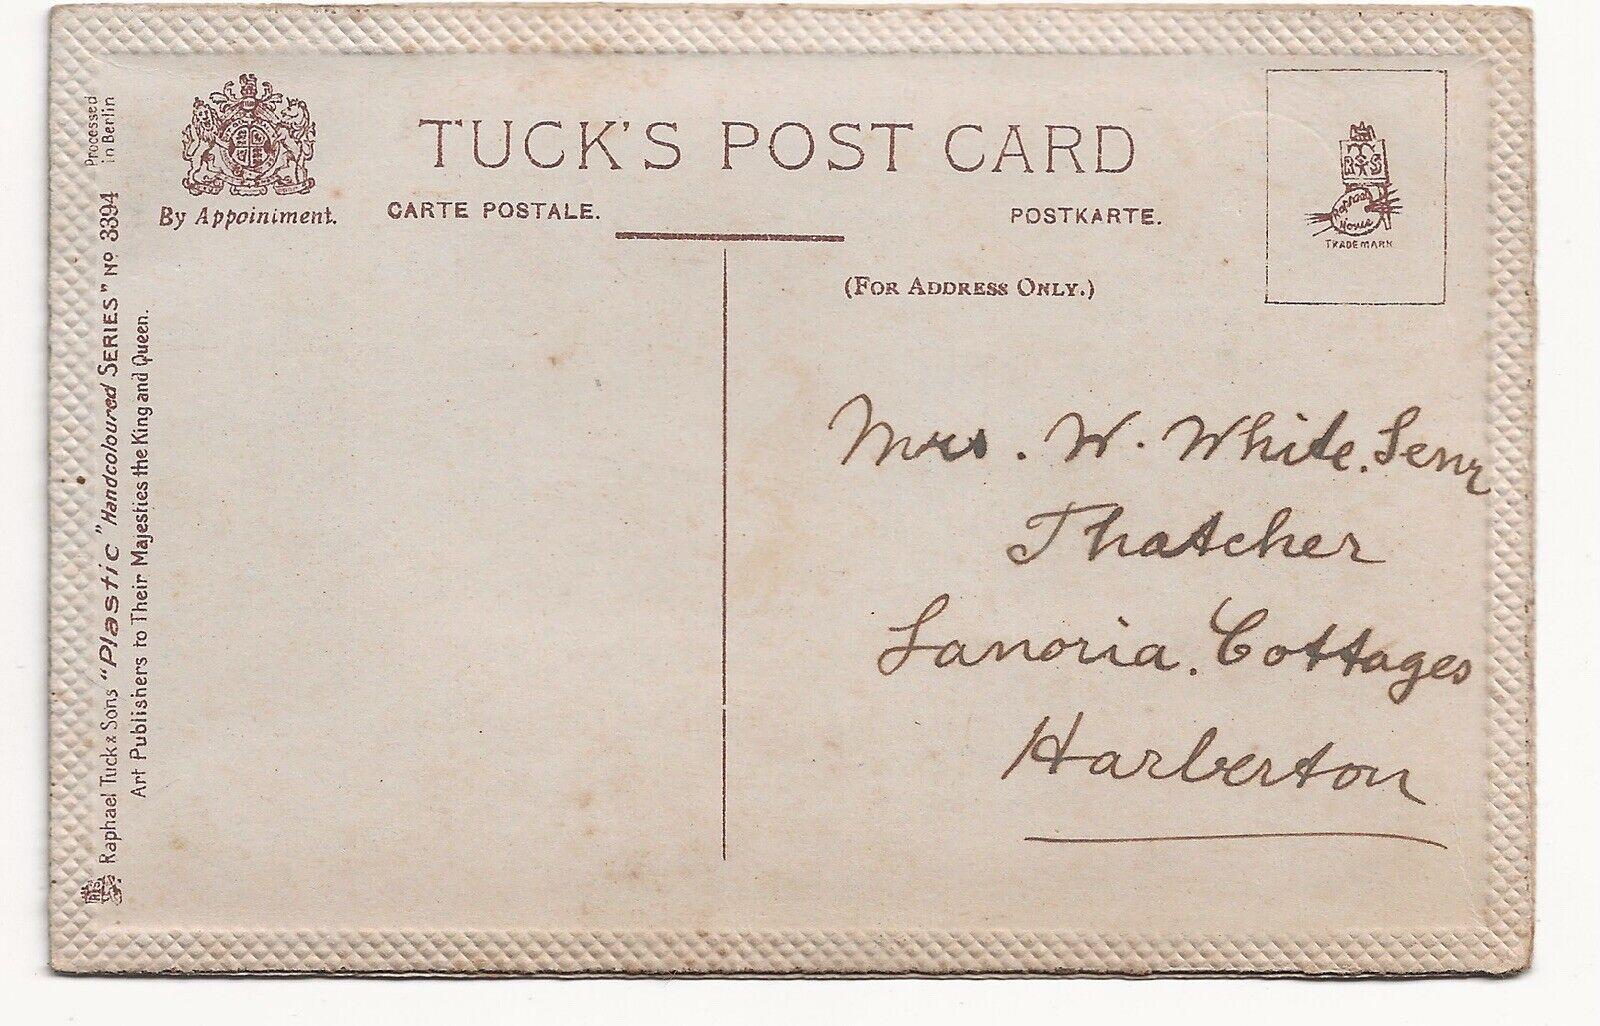 TUCK'S POST CARD
By Appointment.
CARTE POSTALE.
POSTKARTE.
(FOR ADDRESS ONLY.)
R T S
Raphael
House
TRADE MARK
Processed
in Berlin
Raphael Tuck & Sons "Plastic" Handcoloured SERIES" No 3394
Art Publishers to Their Majesties the King and Queen.
Mrs. W. White. Senr
Thatcher
Lanoria. Cottages
Harberton